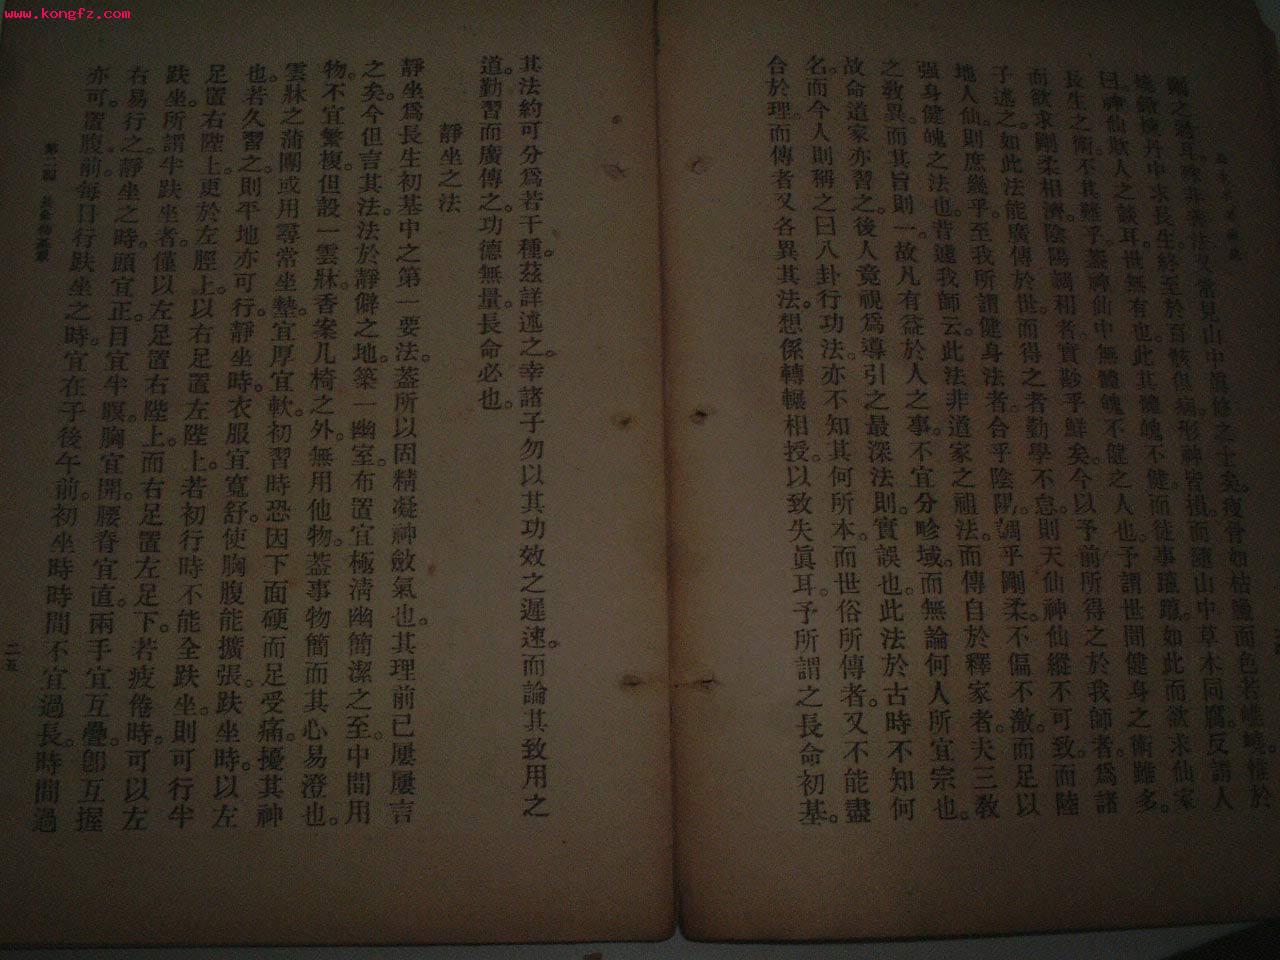 www.kongfz.com
之過耳殊非善法又常見山中眞修之士矣瘦骨如枯臘面色若
燒鍛煉丹中求長生終至於百骸俱病形神皆損而隨山中草木同腐反謂人
曰神仙欺人之談耳世無有也此其體魄不健而徒事如此而欲求仙家
長生之術不其難乎蓋神仙中無體魄不健之人也予謂世間健身之術雖多
而欲求剛柔相濟陰陽調和者實尠乎鮮矣今以予前所得之於我師者爲諸
子述之如此法能廣傳於世而得之者勤學不怠則天仙神仙縱不可致而陸
地人仙則庶幾乎至我所謂健身法者合乎陰陽調乎剛柔不偏不激而足以
强身健魄之法也昔達我師云此法非道家之祖法而傳自於釋家者夫三敎
之敎異而其旨則一故凡有益於人之事不宜分畛域而無論何人所宜宗也
故命道家亦習之後人竟視爲導引之最深法則實誤也此法於古時不知何
名而今人則稱之曰八卦行功法亦不知其何所本而世俗所傳者又不能盡
合於理而傳者又各異其法想係轉輾相授以致失眞耳予所謂之長命初基
其法約可分爲若干種茲詳述之幸諸子勿以其功效之遲速而論其致用之
道勤習而廣傳之功德無量長命必也
靜坐之法
靜坐爲長生初基中之第一要法蓋所以固精凝神斂氣也其理前已屢屢言
之矣今但言其法法於靜僻之地築一幽室布置宜極淸幽簡潔之至中間用
物不宜繁複但設一雲牀香案几椅之外無用他物蓋事物簡而其心易澄也
雲牀之蒲團或用尋常坐墊宜厚宜軟初習時恐因下面硬而足受痛擾其神
也若久習之則平地亦可行靜坐時衣服宜寬舒使胸腹能擴張趺坐時以左
足置右陛上更於左脛上以右足置左陛上若初行時不能全趺坐則可行半
趺坐所謂半趺坐者僅以左足置右陛上而右足置左足下若疲倦時可以左
右易行之靜坐之時頭宜正目宜半瞑胸宜開腰脊宜直兩手宜互疊卽互握
亦可置腹前每日行趺坐之時宜在子後午前初坐時時間不宜過長時間過
第二編 長命初基觀
二五